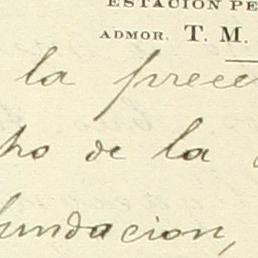 ESTACION PE
ADMOR. T. M.
la prece
ho de la
fundacion,